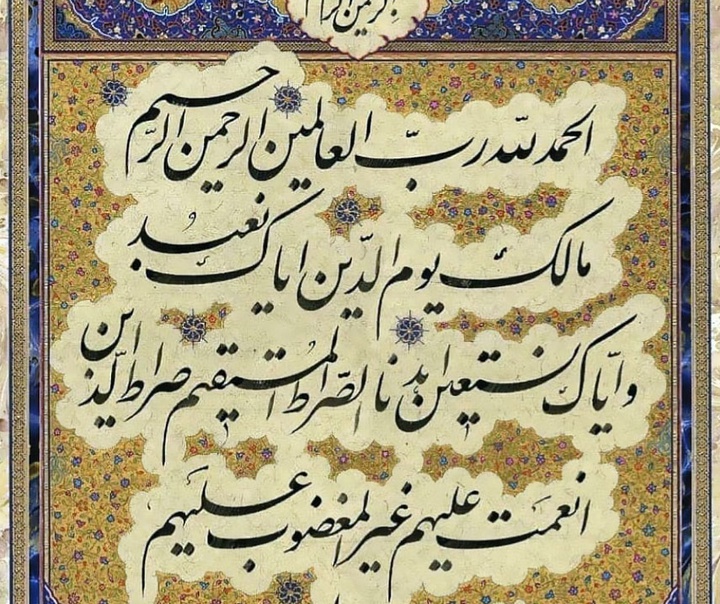 الرحمن الرحیم
الحمد لله رب العالمین الرحمن الرحیم
مالک یوم الدین ایاک نعبد
و ایاک نستعین اهدنا الصراط المستقیم صراط الذین
انعمت علیهم غیر المغضوب علیهم